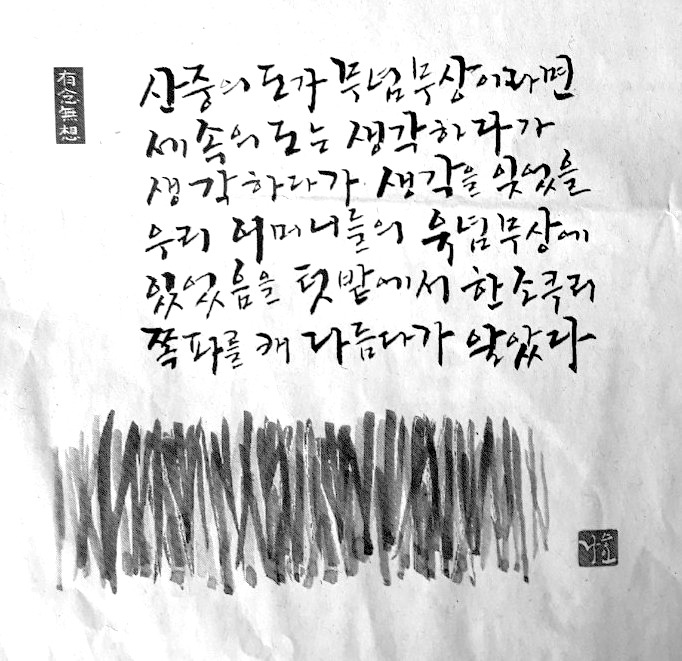 有念無想
산중의 도가 무념무상이라면
세속의 도는 생각하다가
생각하다가 생각을 잊었을
우리 어머니들의 유념무상에
있었음을 텃밭에서 한 소쿠리
쪽파를 캐 다듬다가 알았다